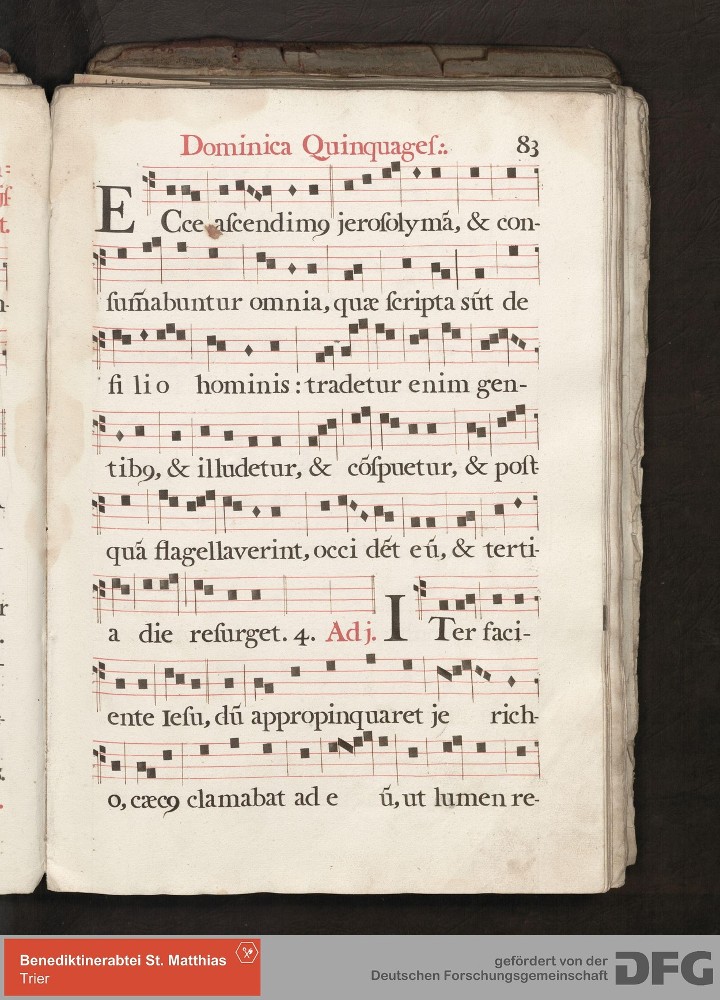 Dominica Quinquageſ:. 83
ECce aſcendimꝯ jeroſolymã, & con-
ſum̃abuntur omnia, quæ ſcripta sũt de
fi li o hominis : tradetur enim gen-
tibꝯ, & illudetur, & cõſpuetur, & poſt
quã flagellaverint, occi dẽt eũ, & terti-
a die reſurget. 4. Ad j. ITer faci-
ente Ieſu, dũ appropinquaret je rich-
o, cæcꝯ clamabat ad e ũ, ut lumen re-
Benediktinerabtei St. Matthias
Trier
gefördert von der
Deutschen Forschungsgemeinschaft DFG